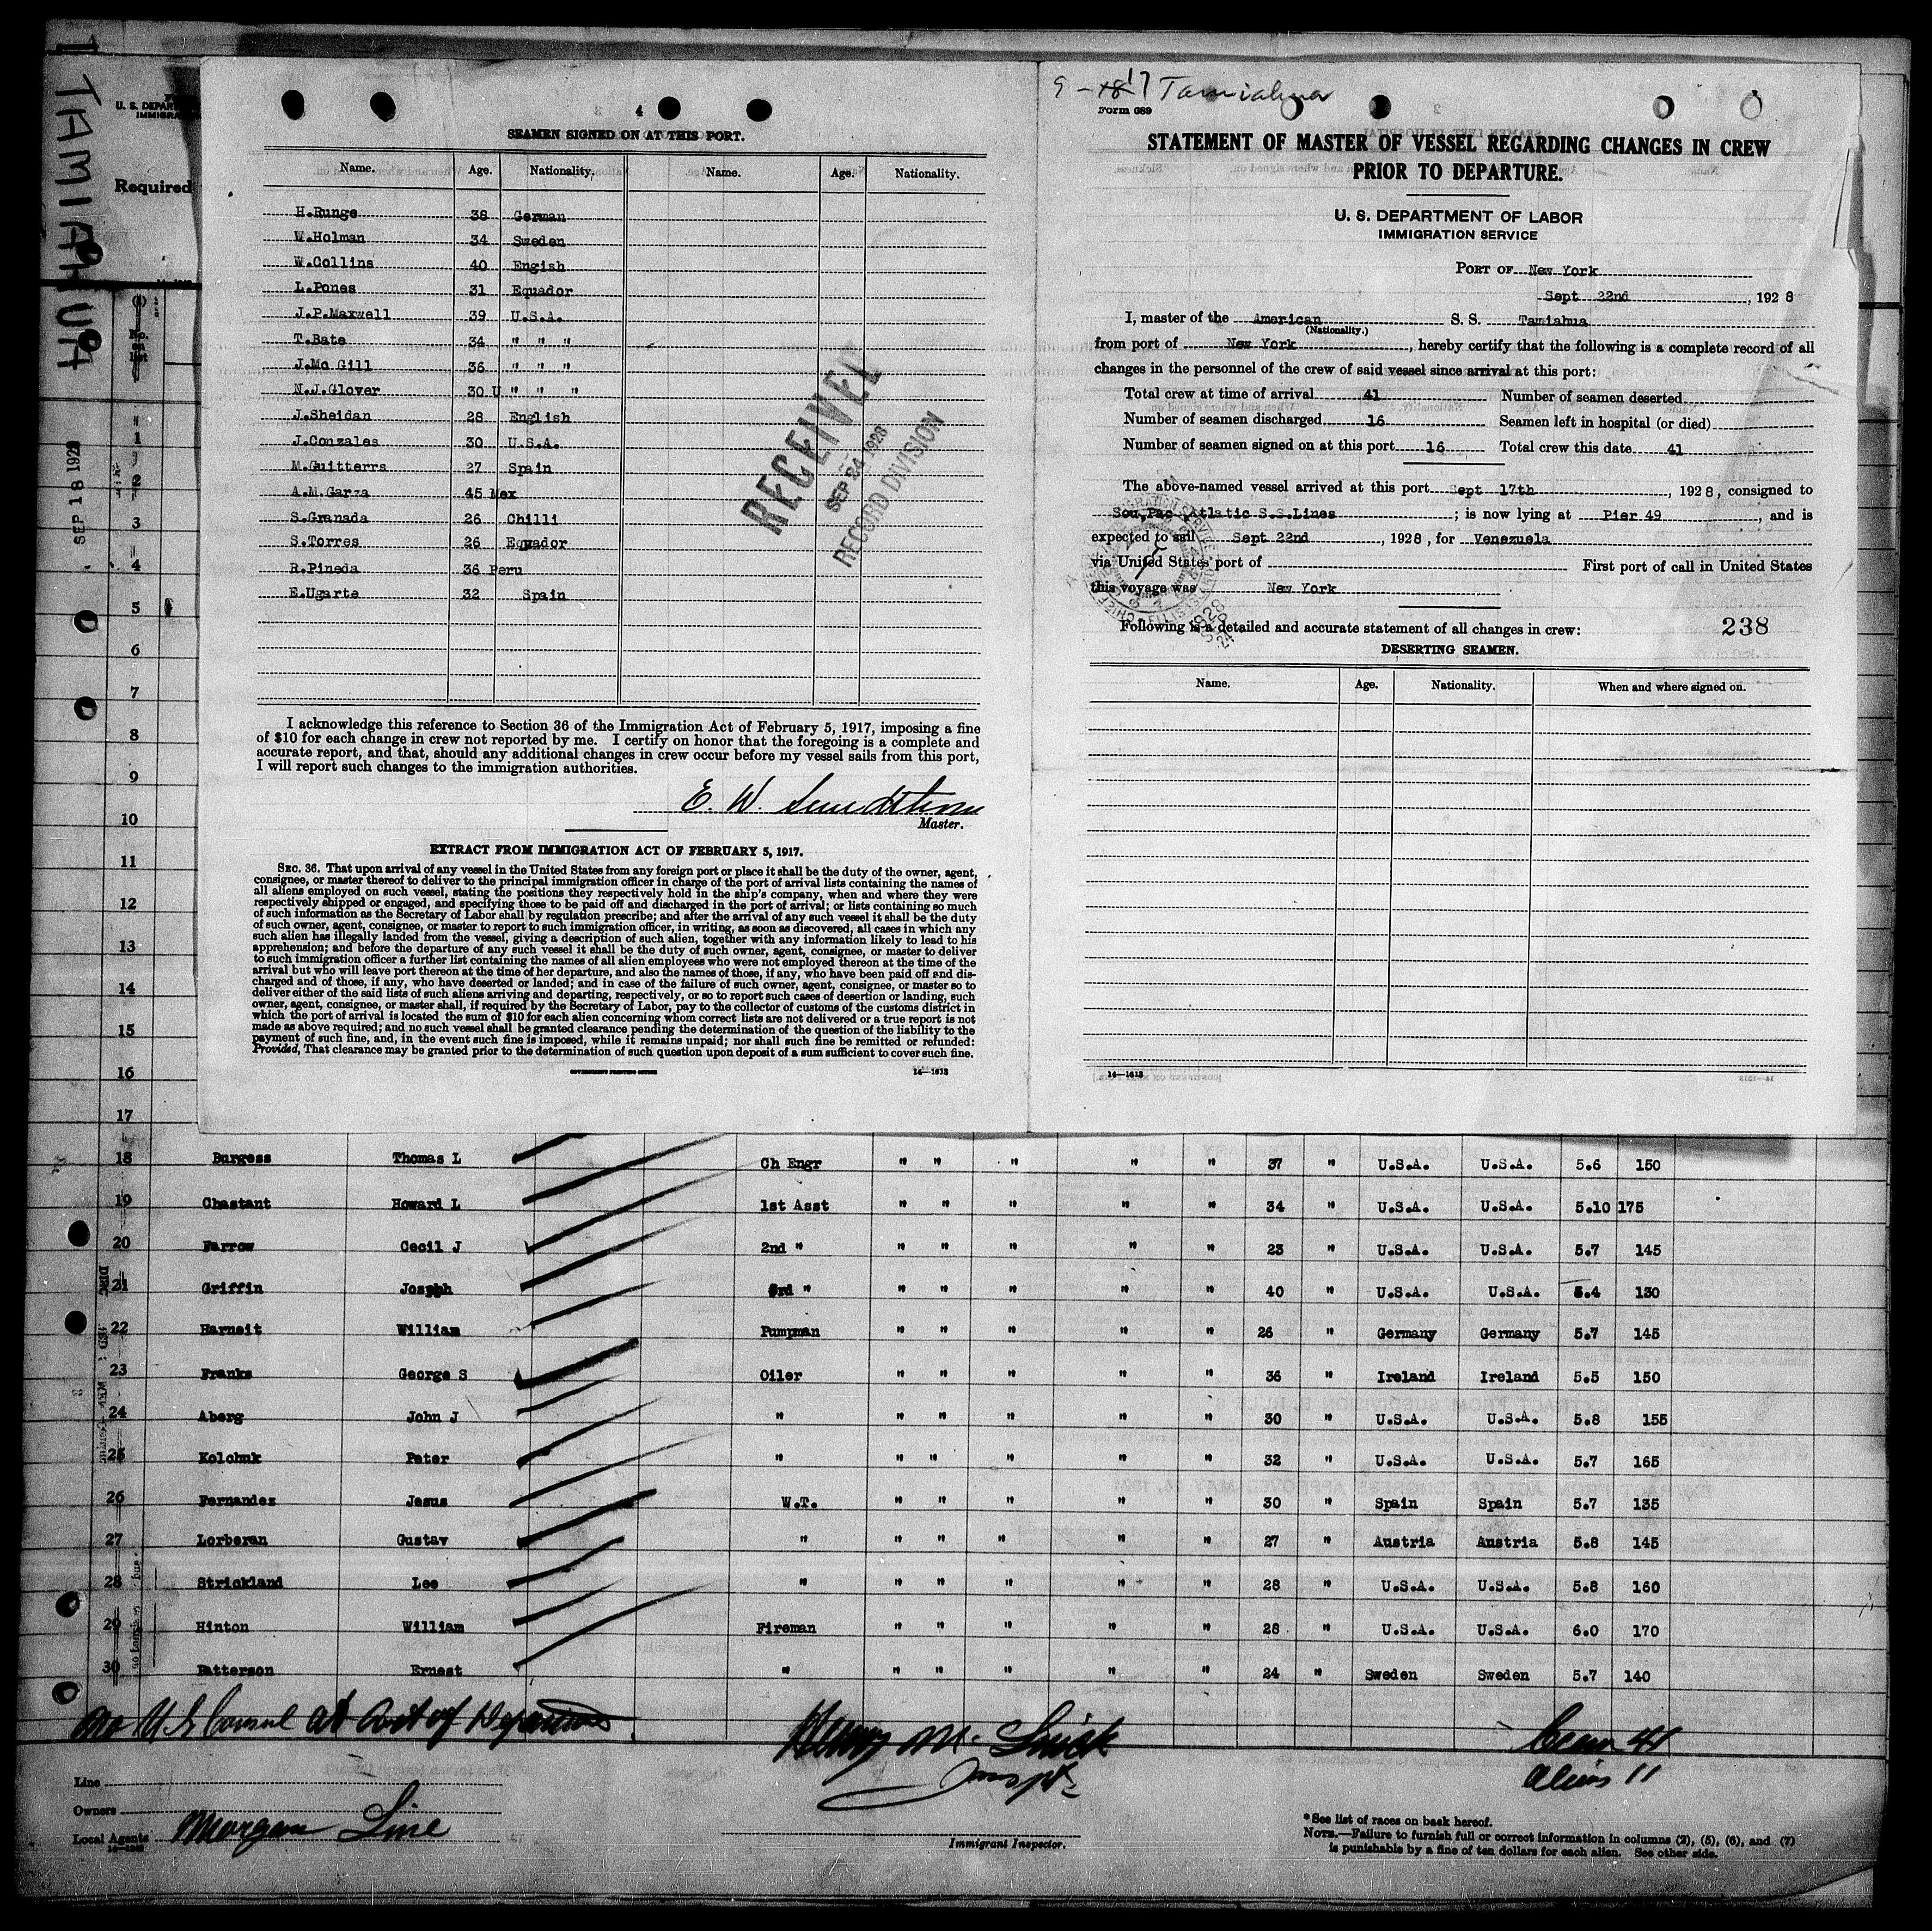 TAMIAHUA
U. S. DEPART
IMMIGRA
Required
No. on list
SEP 18 1928
4
SEAMEN SIGNED ON AT THIS PORT.
Name. Age. Nationality. Name. Age. Nationality.
H.Runge 38 German
W.Holman 34 Sweden
W.Collins 40 Engish
L.Pones 31 Equador
J.P.Maxwell 39 U.S.A.
T.Bate 34 " " "
J.Mc Gill 36 " " "
N.J.Glover 30 U " " "
J.Sheidan 28 English
J.Conzales 30 U.S.A.
M.Guitterrs 27 Spain
A.M.Garza 45 Mex
S.Granada 26 Chilli
S.Torres 26 Equador
R.Pineda 36 Peru
E.Ugarte 32 Spain
RECEIVED
SEP 24 1928
RECORD DIVISION
I acknowledge this reference to Section 36 of the Immigration Act of February 5, 1917, imposing a fine
of $10 for each change in crew not reported by me. I certify on honor that the foregoing is a complete and
accurate report, and that, should any additional changes in crew occur before my vessel sails from this port,
I will report such changes to the immigration authorities.
E. W.
Master.
EXTRACT FROM IMMIGRATION ACT OF FEBRUARY 5, 1917.
SEC. 36. That upon arrival of any vessel in the United States from any foreign port or place it shall be the duty of the owner, agent,
consignee, or master thereof to deliver to the principal immigration officer in charge of the port of arrival lists containing the names of
all aliens employed on such vessel, stating the positions they respectively hold in the ship's company, when and where they were
respectively shipped or engaged, and specifying those to be paid off and discharged in the port of arrival; or lists containing so much
of such information as the Secretary of Labor shall by regulation prescribe; and after the arrival of any such vessel it shall be the duty
of such owner, agent, consignee, or master to report to such immigration officer, in writing, as soon as discovered, all cases in which any
such alien has illegally landed from the vessel, giving a description of such alien, together with any information likely to lead to his
apprehension; and before the departure of any such vessel it shall be the duty of such owner, agent, consignee, or master to deliver
to such immigration officer a further list containing the names of all alien employees who were not employed thereon at the time of the
arrival but who will leave port thereon at the time of her departure, and also the names of those, if any, who have been paid off and dis-
charged and of those, if any, who have deserted or landed; and in case of the failure of such owner, agent, consignee, or master so to
deliver either of the said lists of such aliens arriving and departing, respectively, or so to report such cases of desertion or landing, such
owner, agent, consignee, or master shall, if required by the Secretary of Labor, pay to the collector of customs of the customs district in
which the port of arrival is located the sum of $10 for each alien concerning whom correct lists are not delivered or a true report is not
made as above required; and no such vessel shall be granted clearance pending the determination of the question of the liability to the
payment of such fine, and, in the event such fine is imposed, while it remains unpaid; nor shall such fine be remitted or refunded:
Provided, That clearance may be granted prior to the determination of such question upon deposit of a sum sufficient to cover such fine.
GOVERNMENT PRINTING OFFICE 14—1613
9-17 Tamiahua
Form 689
STATEMENT OF MASTER OF VESSEL REGARDING CHANGES IN CREW
PRIOR TO DEPARTURE.
U. S. DEPARTMENT OF LABOR
IMMIGRATION SERVICE
PORT OF New York
Sept 22nd, 1928
I, master of the American S. S. Tamiahua
(Nationality.)
from port of New York, hereby certify that the following is a complete record of all
changes in the personnel of the crew of said vessel since arrival at this port:
Total crew at time of arrival 41 Number of seamen deserted
Number of seamen discharged 16 Seamen left in hospital (or died)
Number of seamen signed on at this port 16 Total crew this date 41
The above-named vessel arrived at this port Sept 17th, 1928, consigned to
Sou,Pac Atlatic S.S.Lines; is now lying at Pier 49, and is
expected to sail Sept 22nd, 1928, for Venezuela
via United States port of First port of call in United States
this voyage was New York
Following is a detailed and accurate statement of all changes in crew: 238
DESERTING SEAMEN.
Name. Age. Nationality. When and where signed on.
14—1613
1
2
3
4
5
6
7
8
9
10
11
12
13
14
15
16
17
18 Burgess Thomas L Ch Engr " " " " " 37 " U.S.A. U.S.A. 5.6 150
19 Chastant Howard L 1st Asst " " " " " 34 " U.S.A. U.S.A. 5.10 175
20 Farrow Cecil J 2nd " " " " " " 23 " U.S.A. U.S.A. 5.7 145
21 Griffin Joseph 3rd " " " " " " 40 " U.S.A. U.S.A. 5.4 130
22 Harneit William Pumpman " " " " " 26 " Germany Germany 5.7 145
23 Franks George S Oiler " " " " " 36 " Ireland Ireland 5.5 150
24 Aberg John J " " " " " " 30 " U.S.A. U.S.A. 5.8 155
25 Kolchuk Peter " " " " " " 32 " U.S.A. U.S.A. 5.7 165
26 Fernandez Jesus W.T. " " " " " 30 " Spain Spain 5.7 135
27 Lorberan Gustav " " " " " " 27 " Austria Austria 5.8 145
28 Strickland Lee " " " " " " 28 " U.S.A. U.S.A. 5.8 160
29 Hinton William Fireman " " " " " 28 " U.S.A. U.S.A. 6.0 170
30 Patterson Ernest " " " " " " 24 " Sweden Sweden 5.7 140
No U S Consul at Port of Departure
Henry M.
Inspt.
Crew 41
Aliens 11
Line
Owners
Local Agents Morgan Line
Immigrant Inspector.
*See list of races on back hereof.
NOTE.—Failure to furnish full or correct information in columns (2), (5), (6), and (7)
is punishable by a fine of ten dollars for each alien. See other side.